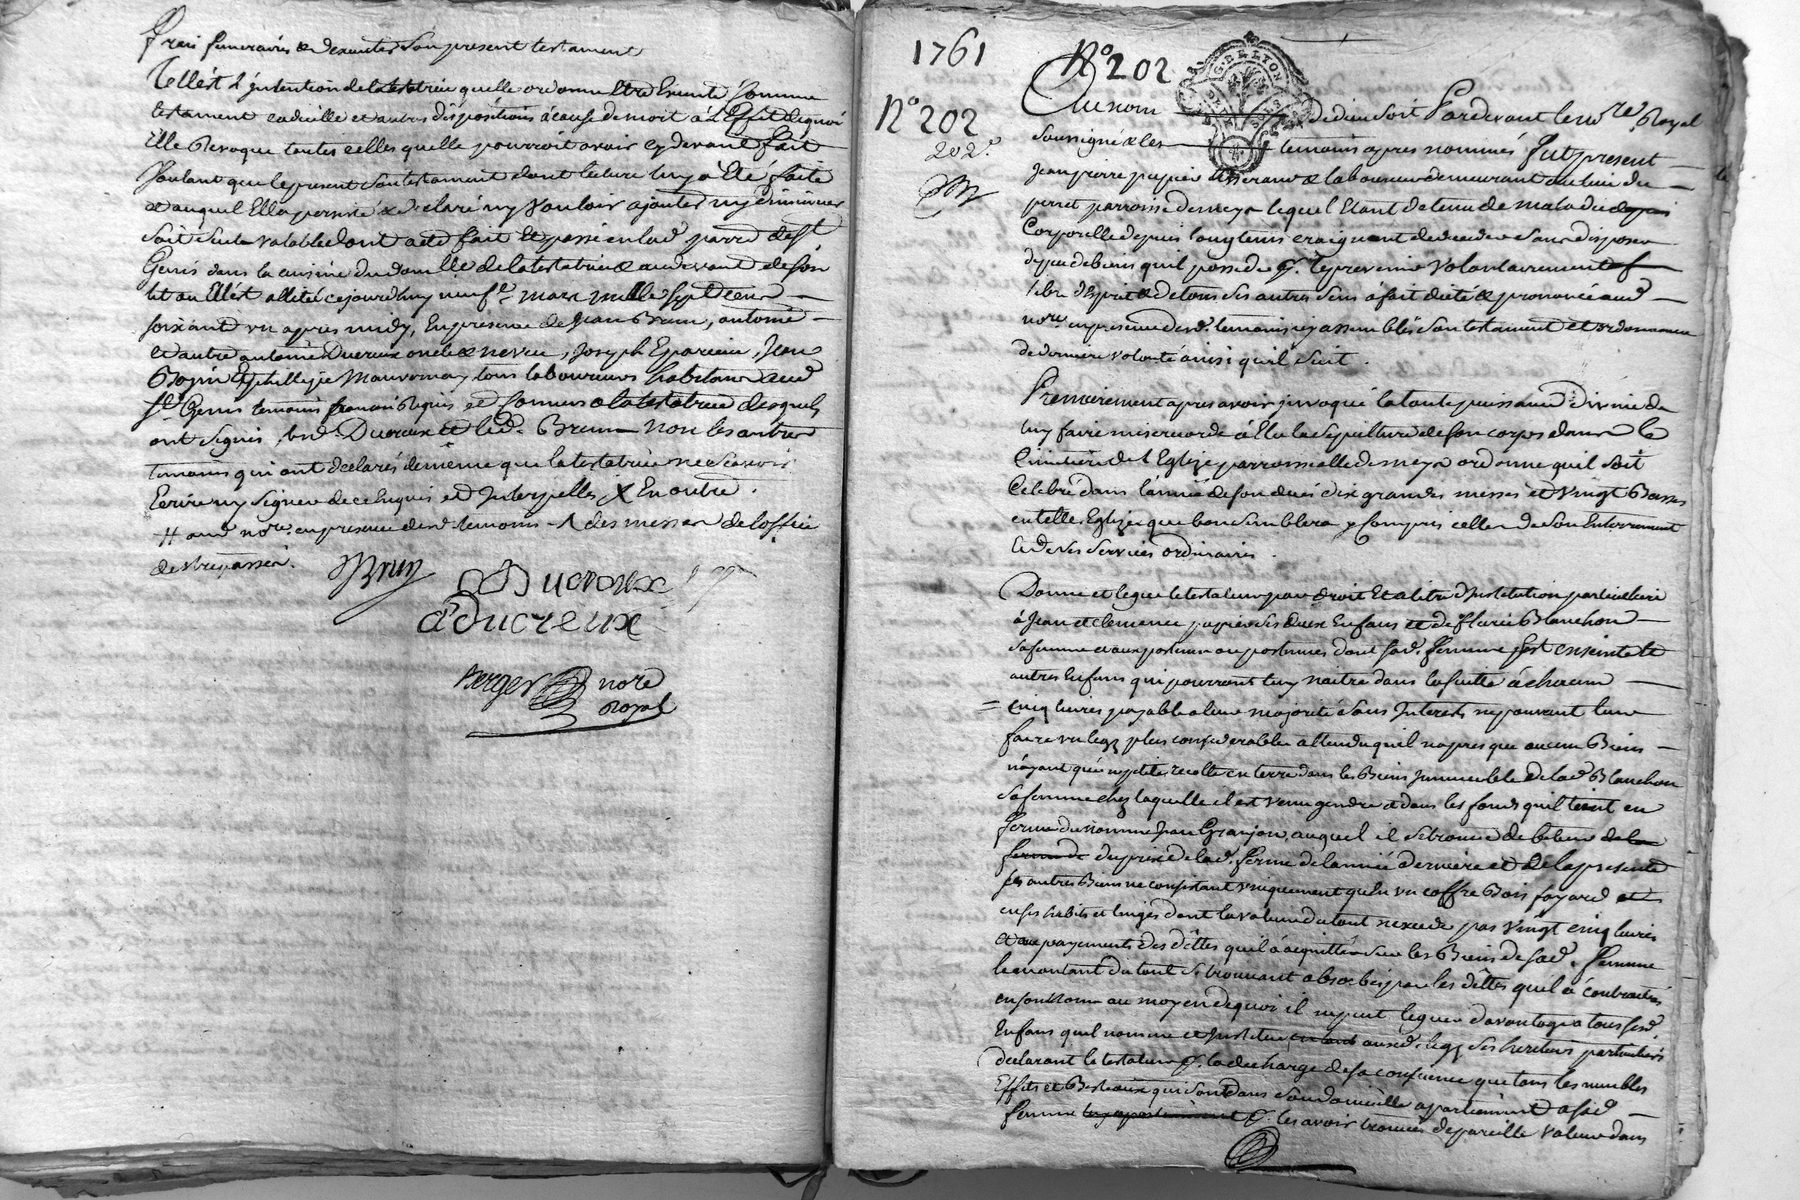 frais funeraires & dexecuter son present testament
Telle est l'intention de la testatrice quelle ordonne Etre Executé Comme
testament codicille et autres dispositions à cause de mort à L'Effet dequoi
Elle Revoque toutes celles quelle pourroit avoir cy devant fait
Voulant que le present son testament dont lecture luy a Eté faite
& auquel Ella persisté & declaré ny Vouloir ajouter ny diminuer
soit seul valable dont acte fait Et passé en lad parr. de St
Genis dans la cuisine du domille de la testatrice & au devant de son
lit ou Elle est allitée cejourdhuy neuf mars mille sept Cent
soixante un apres midy, En presence de Jean Brun, antoine
et autre antoine Ducreux oncle & neveu, Joseph Eparcieu, Jean
Et phillippe Mauvernay tous laboureurs habitans aud
St Genis temoins Requis et Connus & la testatrice desquels
ont Signés lesd. Ducreux et led. Brun Non les autres
temoins qui ont declarés de même que la testatrice ne Scavoir
Ecrire ny Signer de ce Enquis et Interpellés X En outre.
# aud nore. en presence desd temoins des messes de l'office
des trepassés.
JBrun
Ducreux
aDucreux
Berger nore
Royal
1761 No 202
No 202
202e.
G. DE LYON
Au nom de dieu Soit Pardevant le nore. Royal
Soussigné & les temoins apres nommés fut present
Jean pierre papier tisserand & laboureur demeurant au lieu du
perret parroisse de meys lequel Etant detenu de maladie depuis
Corporelle depuis longtems craignant de deceder sans disposer
du peu de biens quil possede pr. le prevenir Volontairement
libre d'Esprit & de tous ses autres Sens à fait dicté & prononcé aud
nore. en presence desd. temoins icy assemblés Son testament et ordonnance
de derniere volonté ainsi quil Suit.
Premierement apres avoir jnvoqué la toute puissance Divine de
luy faire misericorde à Elu la Sepulture de son corps dans le
Cimetiere de l'Eglize parroissialle de meys ordonne quil Soit
Célebré dans l'année de son deces dix grandes messes et Vingt Basses
en telle Eglize que bon Semblera y Compris celles de Son Enterrement
et de Ses Services ordinaires.
Donne et legue le testateur par droit Et a titre d'Institution particuliere
à Jean et Clemence papier Ses deux Enfans et de fleurie Blanchon
Sa femme et aux postume ou postumes dont Sad. femme pt est enseinte et
autres Enfans qui pourront luy naitre dans la Suitte à chacun
cinq livres payable a leur majorité Sans Interets ne pouvant leur
faire un legs plus considerable attendu quil n'a presque aucun Biens
n'ayant que sa petite recolte en terre dans les Biens Immeuble de lad Blanchon
Sa femme chez laquelle il est venu gendre & dans les fonds quil tient en
ferme du nommé Jean Granjon auquel il se trouve debiteur de la
ferme de du prix de lad. ferme de lannée derniere et de la presente
ses autres Biens ne consistant uniquement qu'en un coffre Bois fayard et
en ses habits et linges dont la valeur du tout n'excede pas Vingt cinq livres
et aux payements des dettes quil à acquitté Sur les Biens de Sad. femme
le montant du tout Se trouvant absorbé par les dettes quil à contractées
en son Nom au moyen dequoi il ne peut leguer davantage a tous Sesd
Enfans quil nomme et Institue auxd. legs Ses heritiers particuliers
declarant le testateur pr. la decharge de sa conscience que tous les meubles
Effets et Bestiaux qui Sont dans Son domicille apartiennent à Sad
femme luy apartiennent pr. les avoir trouvés de pareille Valeur dans